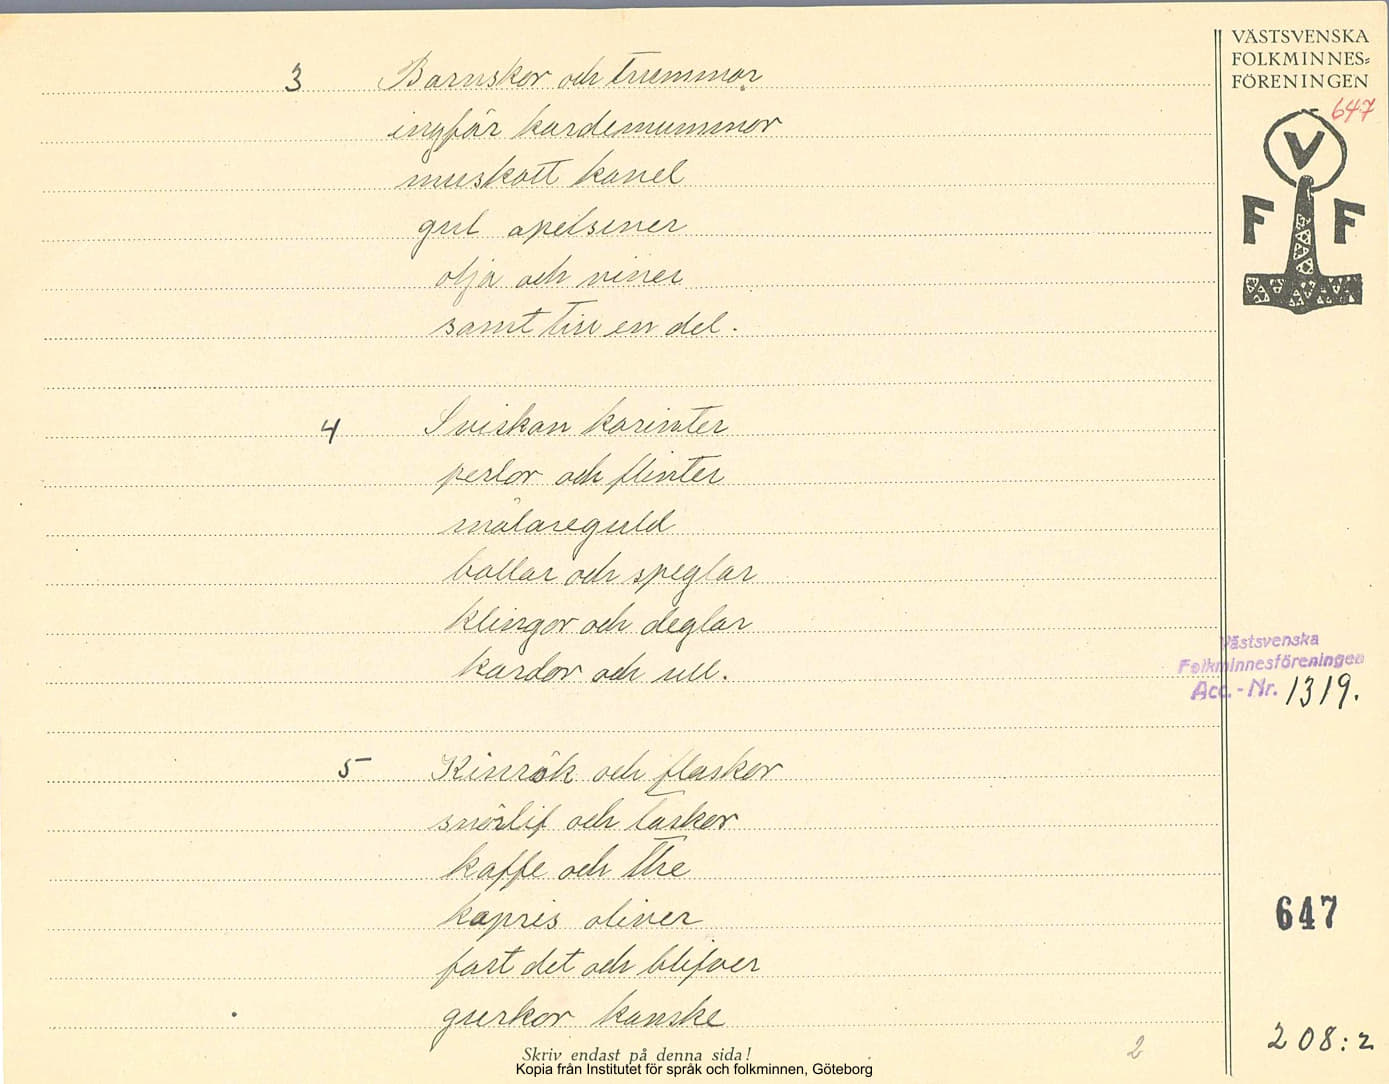 VÄSTSVENSKA
FOLKMINNES-
FÖRENINGEN
647
V
F F
3 Barnskor och trummor
ingfär kardemummor
muskott kanel
gul apelsiner
olja och viner
samt tin en del.
4 Sviskon korinter
perlor och flinter
målareguld
bollar och speglar
klingor och deglar
kardor och ull.
Västsvenska
Folkminnesföreningen
Acc.-Nr. 1319.
5 Kinrök och flaskor
snörlif och taskor
kaffe och the
kapris oliver
fast det och blifver
gurkor kanske
647
208:2
2
Skriv endast på denna sida!
Kopia från Institutet för språk och folkminnen, Göteborg